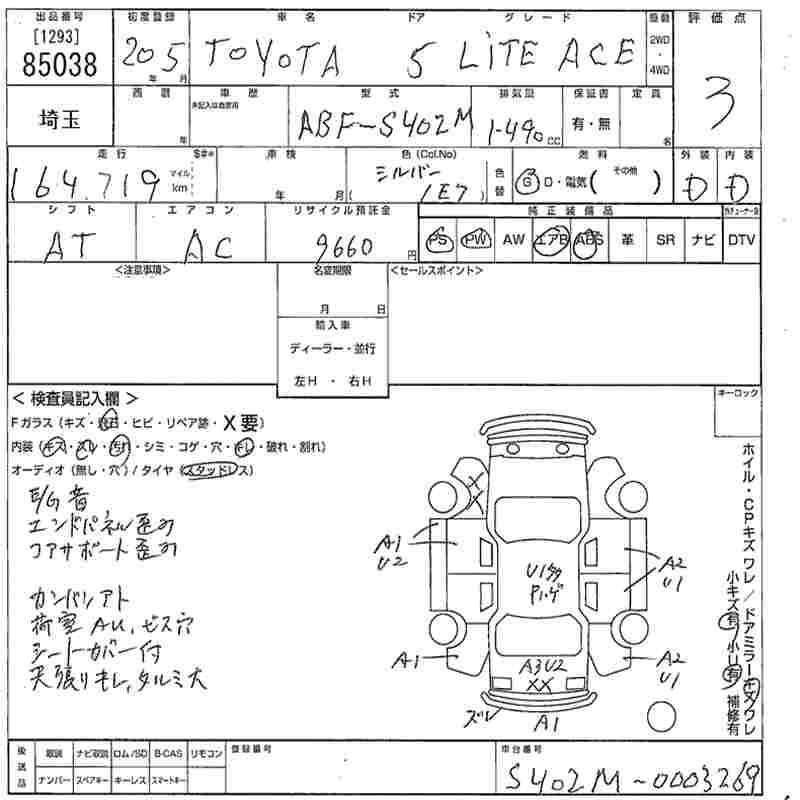 出品番号 初度登録 車名 ドア グレード 駆動 評価点
[1293]
85038 20 5 TOYOTA 5 LiTE ACE 2WD・4WD 3
年 月
西暦 車歴 型式 排気量 保証書 定員
未記入は自家用
埼玉 ABF-S402M 1-490 cc 有・無
年 名
走行 $#* 車検 色(Col.No) 燃料 外装 内装
164.719 マイル km 年 月 シルバー (1E7) 色替 G D・電気( その他 ) D D
シフト エアコン リサイクル預託金 純正装備品
AT AC 9660 円 PS PW AW エアB ABS 革 SR ナビ DTV
<注意事項> 名変期限 <セールスポイント>
月 日
輸入車
ディーラー・並行
左H ・ 右H
< 検査員記入欄 > キーロック
Fガラス(キズ・飛石・ヒビ・リペア跡・X要)
内装(キズ・スレ・汚れ・シミ・コゲ・穴・モレ・破れ・割れ)
オーディオ(無し・穴)/タイヤ(スタッドレス)
E/G音
エンドパネル歪み
コアサポート歪み
カンバンアト
荷室AU、ビス穴
シートカバー付
天張りモレ、タルミ大
XX
A1 U2
A2 U1
U1多
Pハゲ
A1
A3U2
XX
A2 U1
ズレ A1
ホイル・CPキズワレ/ドアミラーキズワレ
小キズ有 小U有 補修有
後送品 取説 ナビ取説 ロム/SD B-CAS リモコン 登録番号 車台番号
ナンバー スペアキー キーレス スマートキー S402M-0003269